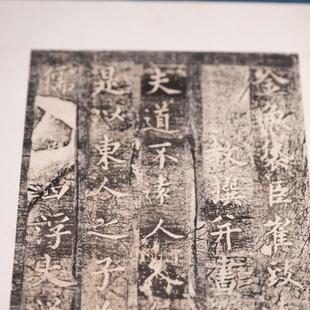 金魚袋臣崔致
教撰并書
夫道不遠人
是以東人之子
西浮大